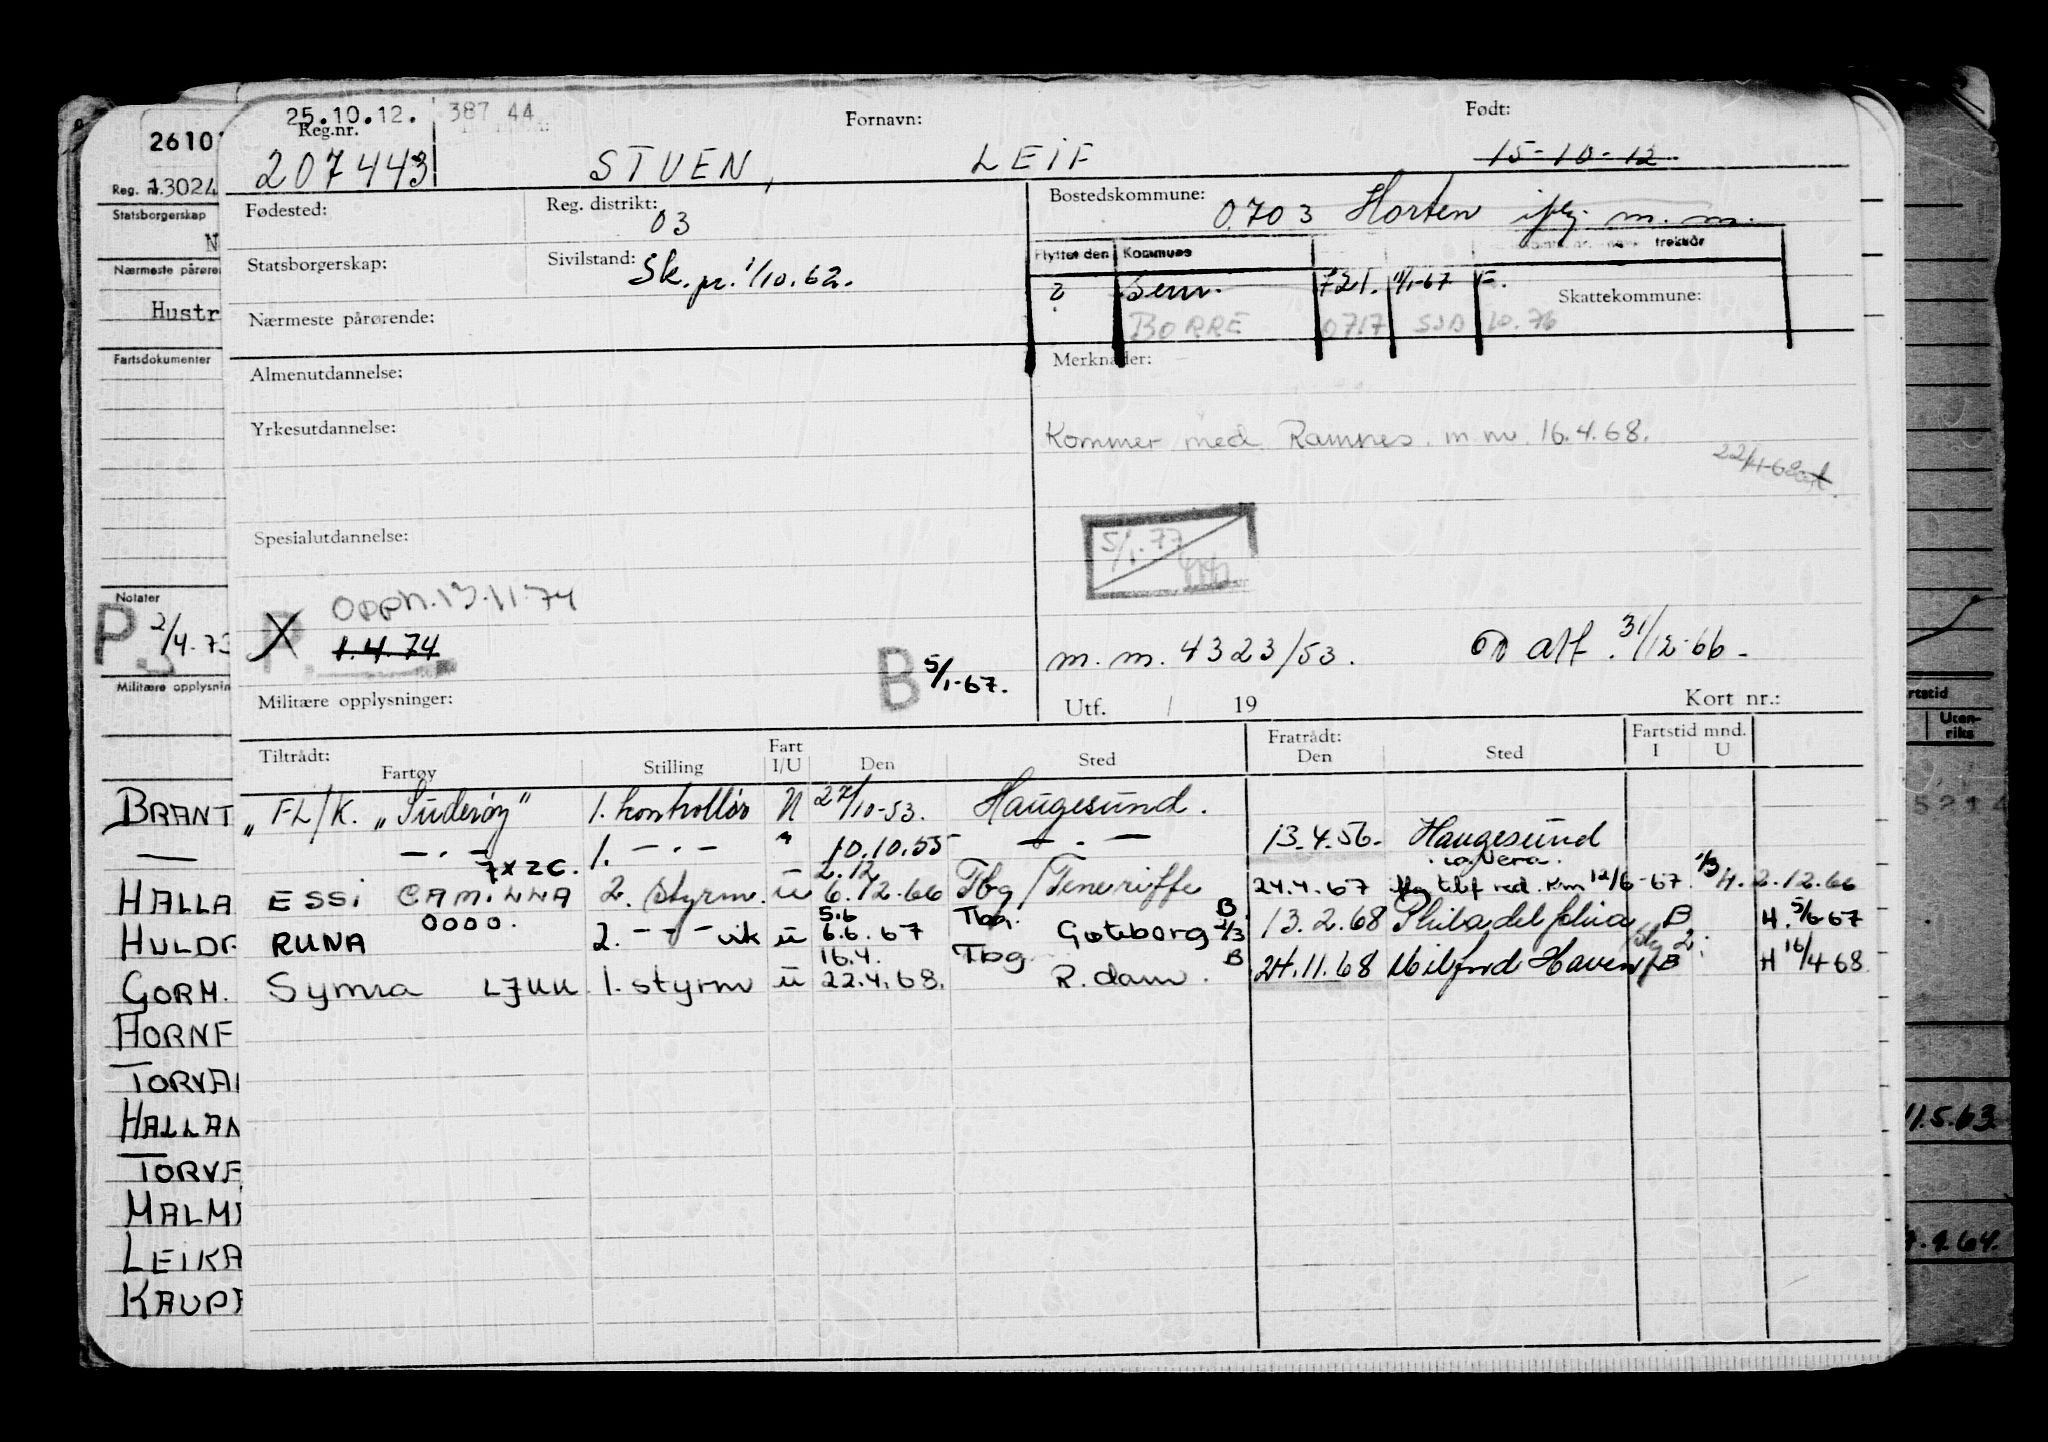 25.10.12. 387 44
Reg.nr. Fornavn: Født:
207443 STUEN, LEIF 15-10-12
Fødested: Reg. distrikt: 03 Bostedskommune: 0703 Horten m.m.
Statsborgerskap: Sivilstand: Sk. pr. 1/10.62.
Flyttet den Kommune trekkår
? Sem. 721. 11/1-67 F. Skattekommune:
Nærmeste pårørende: BORRE 0717 10.76
Almenutdannelse: Merknader:
Yrkesutdannelse: Kommer med Ramnes m.m. 16.4.68.
Spesialutdannelse: 5/1.77
X P. Opph. 13.11.74
1.4.74
B 5/1-67. m.m. 4323/53. alf. 31/12-66-
Militære opplysninger: Utf. / 19 Kort nr.:
Tiltrådt: Fartøy Stilling Fart I/U Den Sted Fratrådt: Den Sted Fartstid mnd. I U
" FL/K. "Suderøy" 1. kontrollør N 27/10-53. Haugesund.
—.— 1. —.— " 10.10.55 —.— 13.4.56. Haugesund
7XZC. 2.12
ESSI CAMILLA 2. styrm. u 6.12.66 Tbg/Teneriffe 24.4.67 12/6-67. 1/3 H. 2.12.66
OOOO. 5.6 Tbg. B
RUNA 2. — — vik u 6.6.67 Gøteborg 2/3 13.2.68 Philadelphia B H. 5/6-67
16.4. Tbg B
Symra LJUU 1. styrm u 22.4.68. R.dam. 24.11.68 Milford Haven B H 16/4 68
26101
Reg. nr. 13024
Statsborgerskap
N
Nærmeste pårøre
Hustr
Fartsdokumenter
Notater
P 2/4.73
Militære opplysnin
BRANT
—
HALLA
HULDR
GORM.
HORNF
TORVA
HALLAN
TORVA
MALM
LEIKA
KAUPA
rtstid
Uten-
riks
5214
11.5.63.